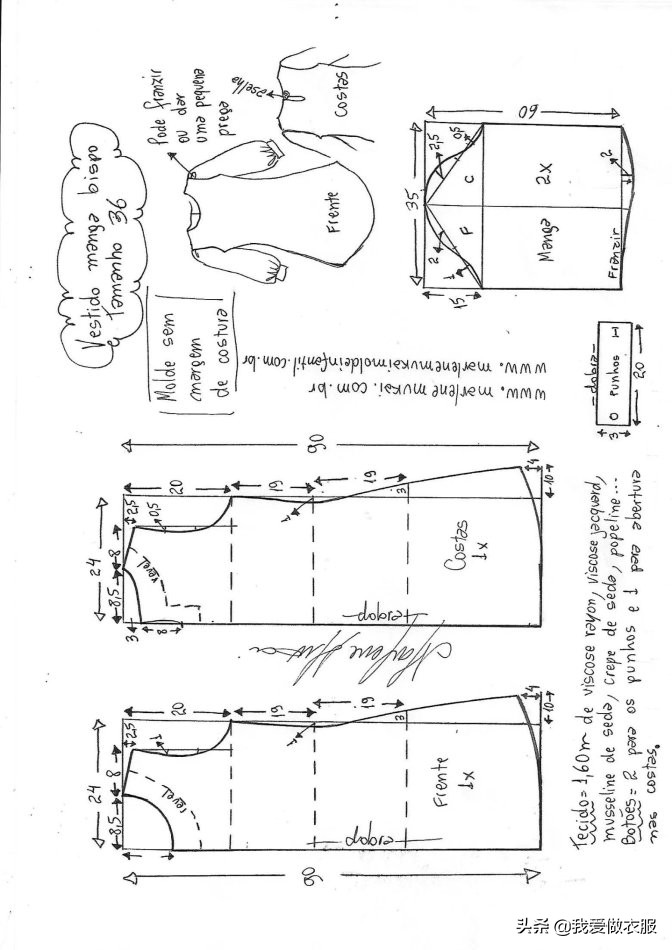 Vestido manga bispo
Tamanho 36
Pode franzir
ou dar
uma pequena
prega
aselha
Costas
Frente
Molde sem
margem
de costura
www.marlenemukai.com.br
www.marlenemukaimoldeinfantil.com.br
60
35
15
2,5
0,5
2
1
C
F
2X
Manga
Franzir
2
-dobra-
Punhos
20
3
90
20
19
19
4
10
2,5
0,5
8
24
8,5
3
8
1
3
revel
Costas
1x
dobra
Marlene Mukai
20
19
19
4
10
2,5
1
8
24
8,5
1
3
revel
Frente
1x
dobra
90
Tecido = 1,60m de viscose rayon, viscose jacquard,
musseline de seda, crepe de seda, popeline...
Botões = 2 para os punhos e 1 para abertura
nas costas.
头条 @我爱做衣服